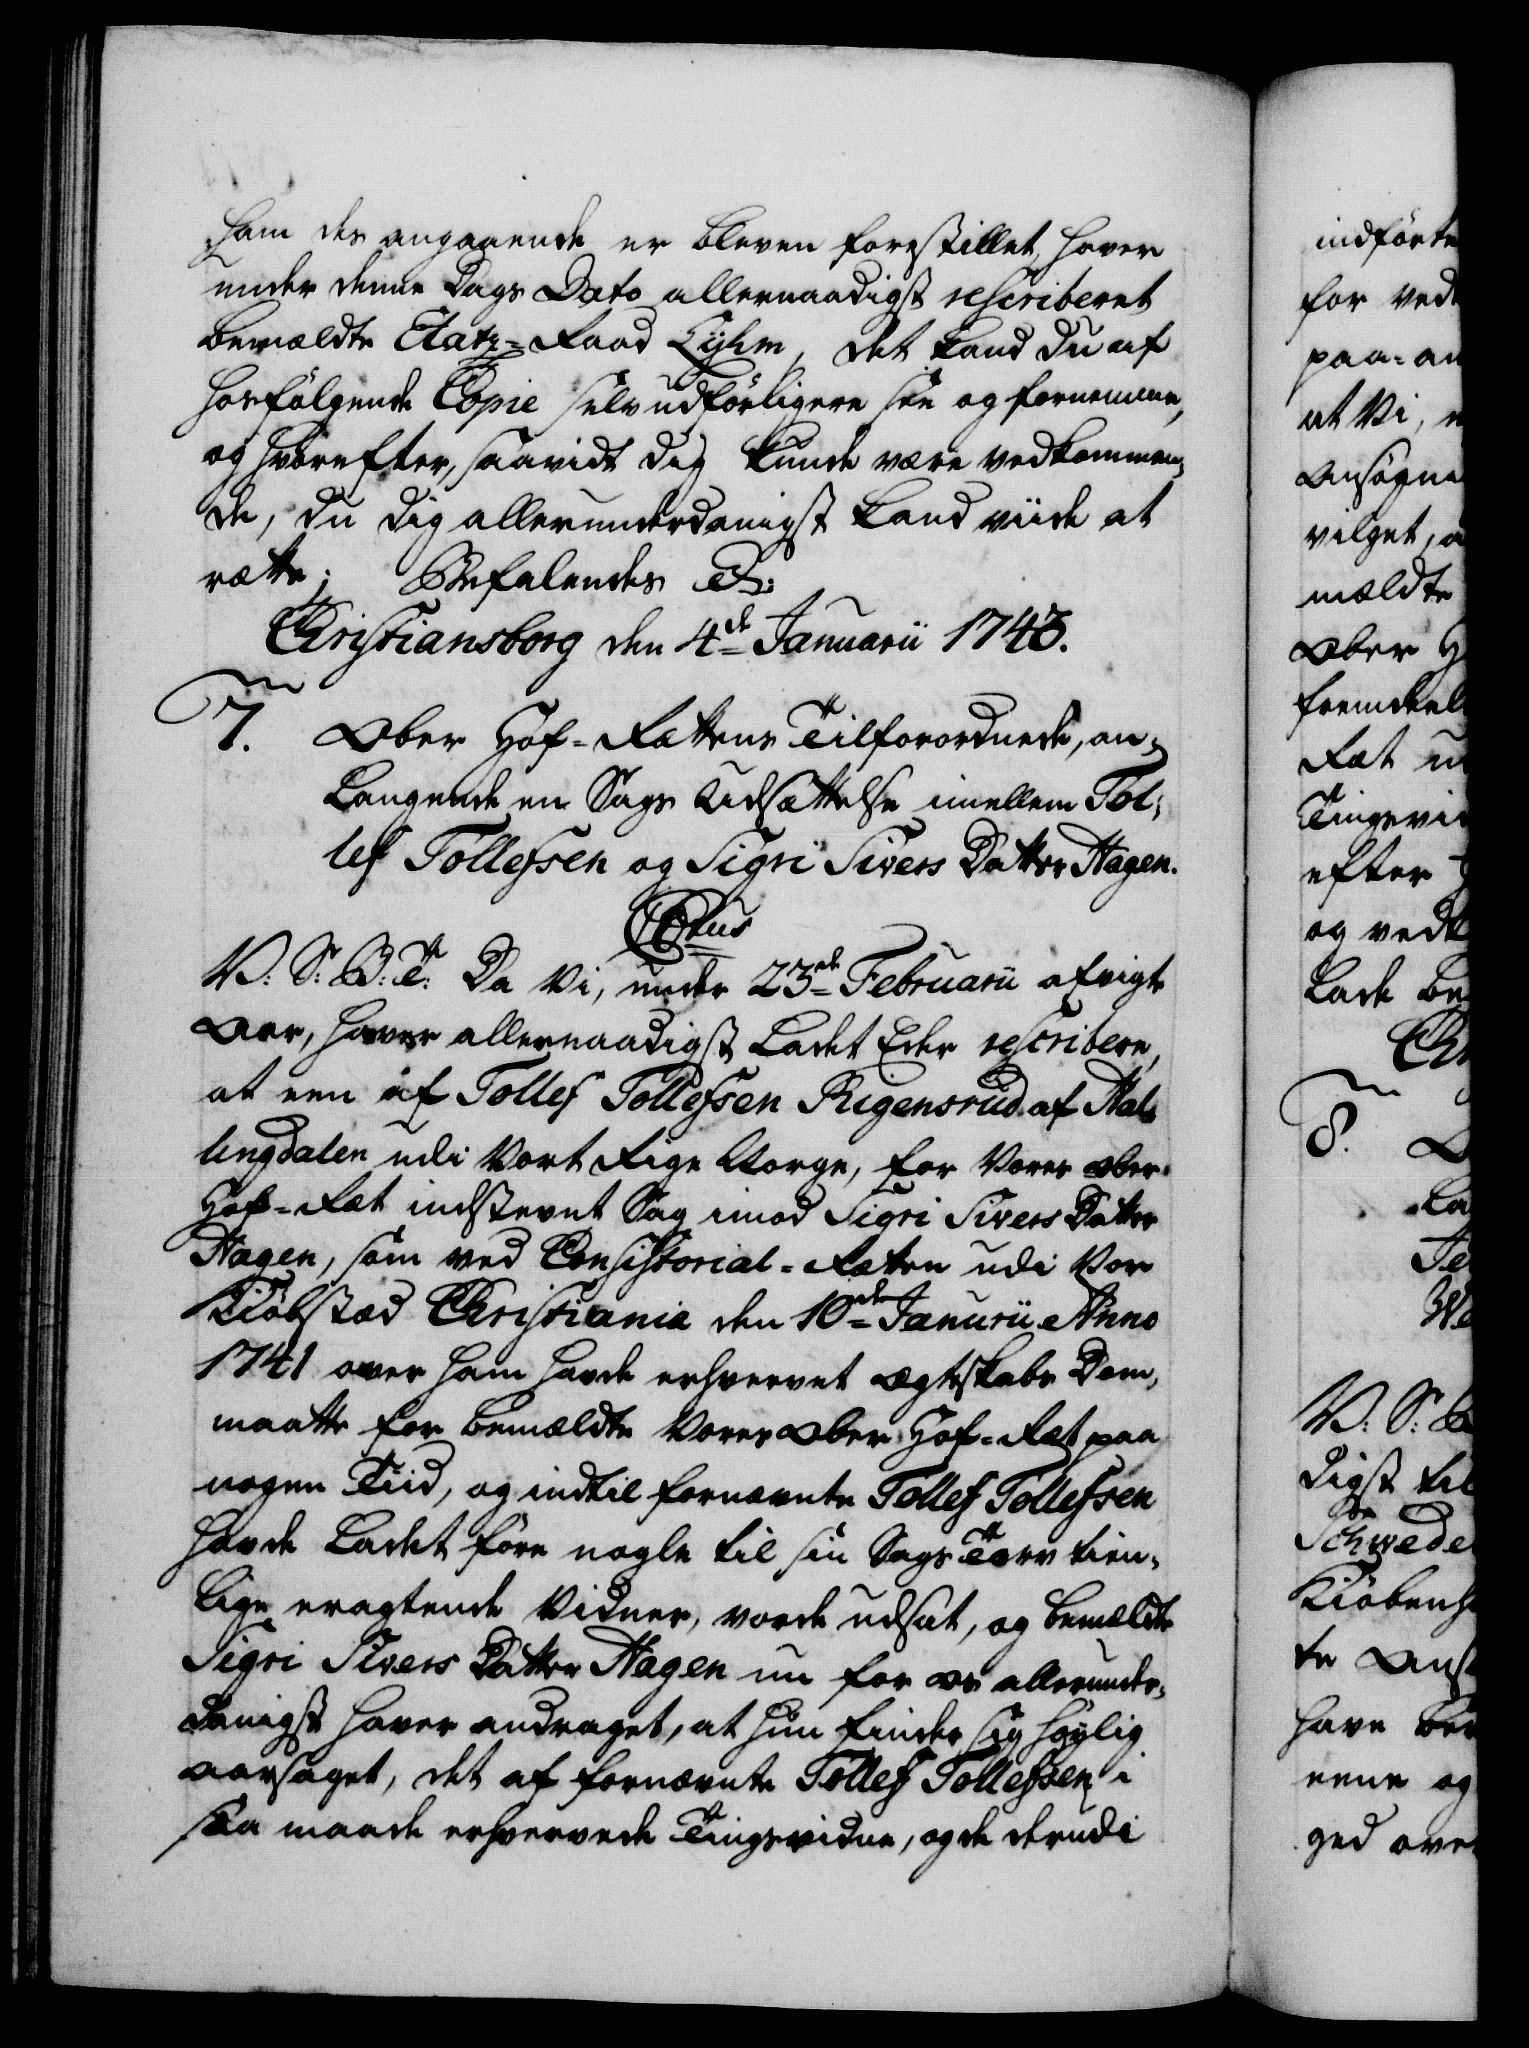 ham des angaaende er bleven forestillet, haver
under denne Dags Dato allernaadigst rescriberet
bemældte Etatz-Raad Lyhm, det kand du af
hosfølgende Copie selv udførligere see og fornemme,
og hvorefter, saavidt dig kunde være vedkommen-
de, du dig allerunderdanigst kand viide at
rætte; Befalendes &:
Christiansborg den 4de Januarii 1743.
7. Ober Hof-Rættens Tilforordnede, an-
langende en Sags Udsættelse imellem Tol-
lef Tollefsen og Sigri Sivers Datter Hagen.
C 6tus
V: S: B: T: Da Vi, under 23de Februarii afvigte
Aar, haver allernaadigst ladet Eder rescribere,
at een af Tollef Tollefsen Rigensrud af Hal-
lingdalen udi Vort Rige Norge, for Vores Ober-
Hof-Ræt indstevnt Sag imod Sigri Sivers Datter
Hagen, som ved Consistorial-Rætten udi Vor
Kiøbstæd Christiania den 10de Januarii Anno
1741 over ham havde erhvervet Ægteskabs Dom,
maatte for bemældte Vores Ober Hof-Ræt paa
nogen Tiid, og indtil fornævnte Tollef Tollefsen
havde ladet føre nogle til sin Sags Tarv tien-
lige eragtende Vidner, vorde udsat, og bemældte
Sigri Sivers Datter Hagen nu for os allerunder-
danigst haver andraget, at hun finder sig høylig
aarsaget, det af fornævnte Tollef Tollefsen i
saa maade erhvervede Tingsvidne, og de derudi
indførte
for ved
paa-an
at Vi,
Ansøgne
vilget, a
mældte
Ober H
fremdeel
Ræt u
Tingsvid
efter
og vedk
lade be
Ch
8.
La
V: S: B
digst til
Schwede
Kiøbenh
te Ans
have be
eene og
ged ove